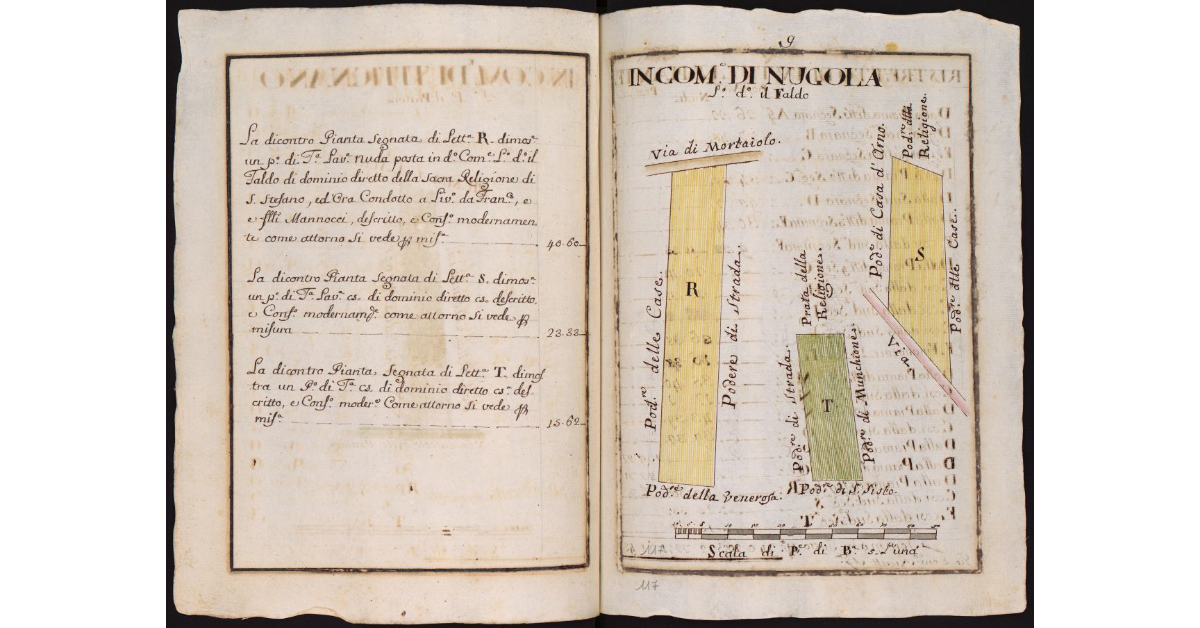 La dicontro Pianta Segnata di Lett.ª R. dimos.ª
un p.º di T.ª Lav.ª nuda posta in d.º Com.e L.º d.º il
Faldo di dominio diretto della Sacra Religione di
S. Stefano, ed Ora Condotto a Liv.º da Fran.co, e
e flli Mannocci, descritto, e Conf.º modernamen
te come attorno Si vede p mis.ª 40.60
La dicontro Pianta Segnata di Lett.ª S. dimos.ª
un p.º di T.ª Lav.ª cs. di dominio diretto cs. descritto,
e Conf.º modernam.te come attorno Si vede p
misura 23.33
La dicontro Pianta, Segnata di Lett.ª T. dimos
tra un P.º di T.ª cs. di dominio diretto cs. des
critto, e Conf.º moder.e Come attorno Si vede p
mis.ª 15.62
9
IN COM.e DI NUGOLA
L.º d.º il Faldo
Via di Mortaiolo.
Pod.re delle Case.
R
Podere di Strada.
Pod.re della Venerosa.
Prata della
Religione.
Pod.re di Strada.
T
Pod.re di Munchione.
Pod.re di S. Sisto
Pod.re di Casa d'Arno.
Pod.re della
Religione.
S
Pod.re delle Case.
Via
Scala di P.e di B.a s. l'una
117
117